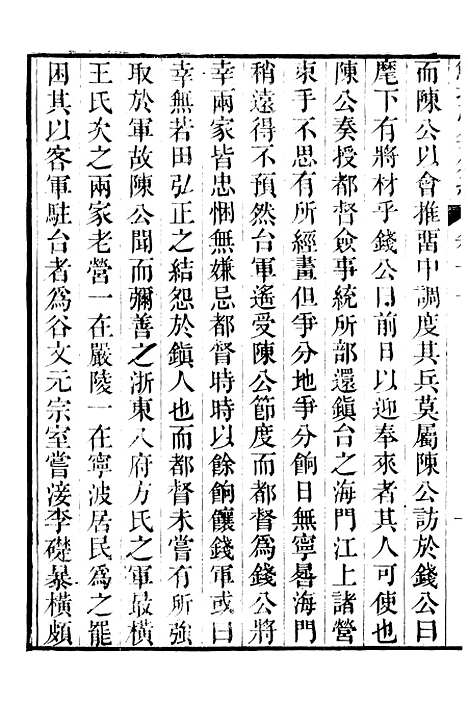 而陳公以會推畱中調度其兵莫屬陳公訪於錢公曰
麾下有將材乎錢公曰前日以迎奉來者其人可使也
陳公奏授都督僉事統所部還鎭台之海門江上諸營
束手不思有所經畫但爭分地爭分餉日無寧晷海門
稍遠得不預然台軍遙受陳公節度而都督爲錢公將
幸兩家皆忠悃無嫌忌都督時時以餘餉饟錢軍或曰
幸無若田弘正之結怨於鎭人也而都督未嘗有所強
取於軍故陳公聞而彌善之浙東八府方氏之軍最橫
王氏次之兩家老營一在嚴陵一在寧波居民爲之罷
困其以客軍駐台者爲谷文元宗室嘗淓李礎暴橫頗